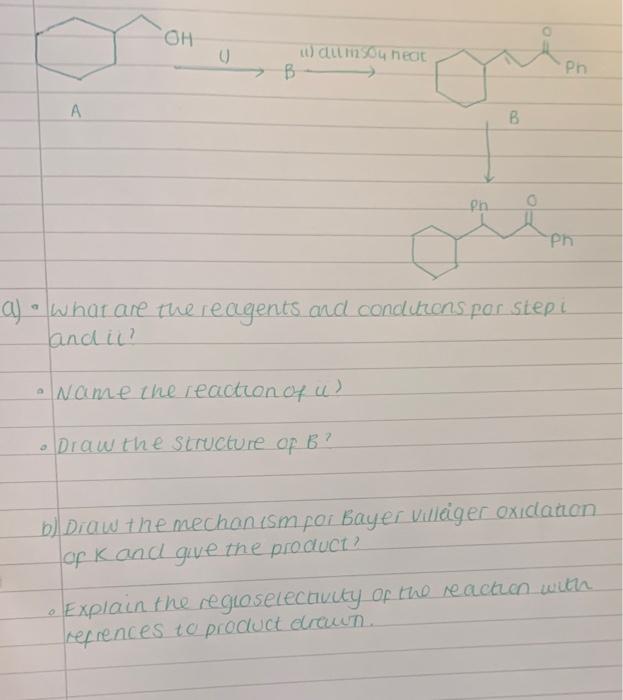 O
OH
i)
ii) dil
heat
B
Ph
A
B
Ph
O
Ph
a) • what are the reagents and conditions for step i
and ii?
• Name the reaction of ii?
• Draw the structure of B?
b) Draw the mechanism for Bayer Villeiger oxidation
of K and give the product?
• Explain the regioselectivity of the reaction with
refrences to product drawn.